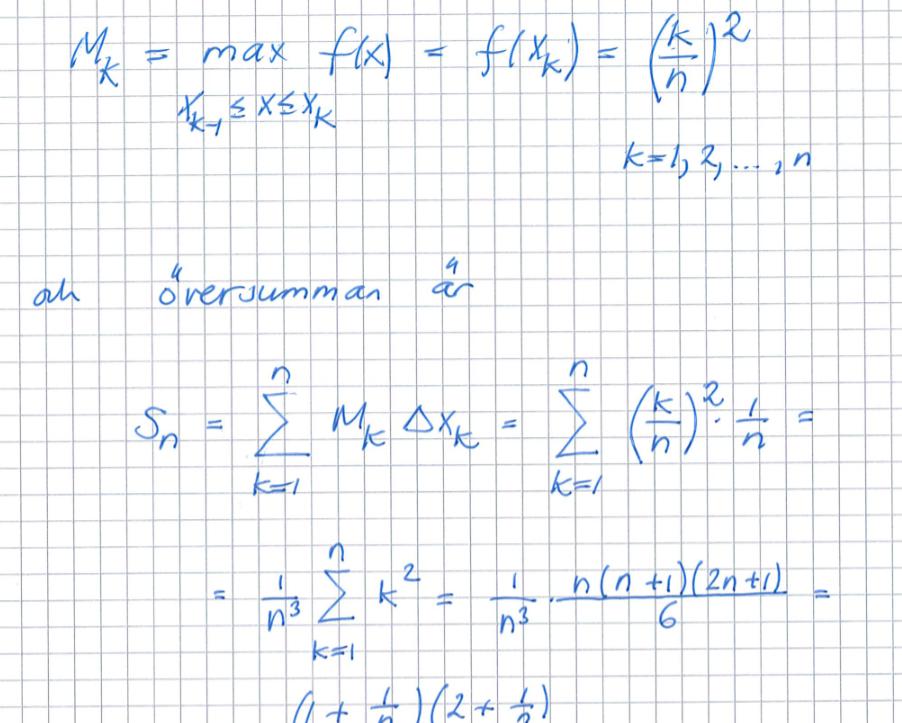 M_k = max f(x) = f(x_k) = (k/n)^2
x_{k-1} ≤ x ≤ x_k
k=1, 2, ..., n
och översumman är
S_n = \sum_{k=1}^{n} M_k Δx_k = \sum_{k=1}^{n} (k/n)^2 · 1/n =
= 1/n^3 \sum_{k=1}^{n} k^2 = 1/n^3 · n(n+1)(2n+1)/6 =
(1 + 1/n)(2 + 1/n)